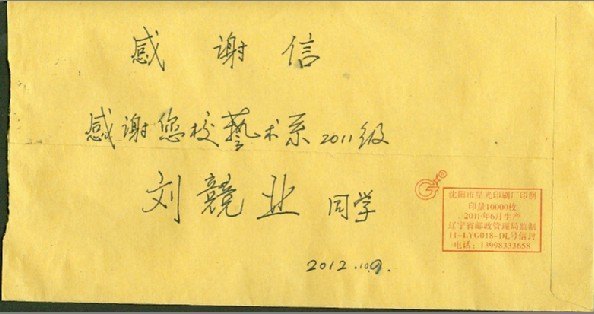 感谢信
感谢您校藝术系2011级
刘競业 同学
2012.10.9.
沈阳市星光印刷厂印刷
印量10000枚
2011年6月生产
辽宁省邮政管理局监制
电话:13998333658